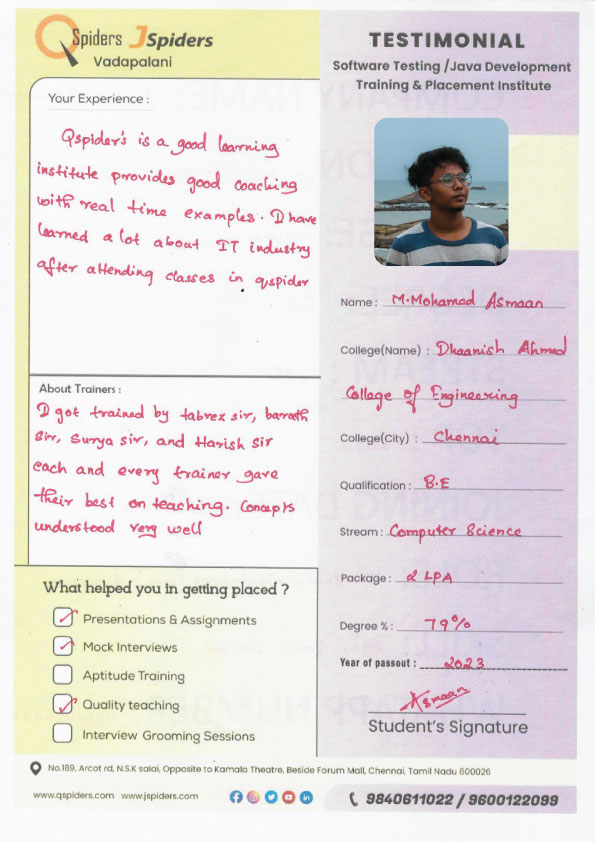 QSpiders JSpiders
Vadapalani
TESTIMONIAL
Software Testing /Java Development
Training & Placement Institute
Your Experience :
Qspider's is a good learning
institute provides good coaching
with real time examples. I have
learned a lot about IT industry
after attending classes in qspider
About Trainers :
I got trained by tabrex sir, barath
Sir, Surya sir, and Harish Sir
each and every trainer gave
their best on teaching. Concepts
understood very well
What helped you in getting placed ?
Presentations & Assignments
Mock Interviews
Aptitude Training
Quality teaching
Interview Grooming Sessions
Name : M.Mohamad Asmaan
College(Name) : Dhaanish Ahmed
College of Engineering
College(City) : Chennai
Qualification : B.E
Stream : Computer Science
Package : 2 LPA
Degree % : 79%
Year of passout : 2023
Asmaan
Student's Signature
No.189, Arcot rd, N.S.K salai, Opposite to Kamala Theatre, Beside Forum Mall, Chennai, Tamil Nadu 600026
www.qspiders.com www.jspiders.com
9840611022 / 9600122099